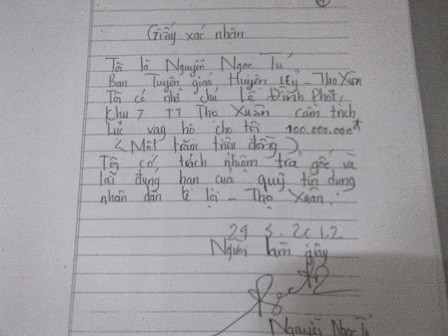 Giấy xác nhận
Tôi là Nguyễn Ngọc Tú
Ban Tuyên giáo Huyện uỷ - Thọ Xuân
Tôi có nhờ chú Lê Đình Phát,
Khu 7 TT Thọ Xuân cầm trích
lục vay hộ cho tôi 100.000.000đ
(Một trăm triệu đồng),
Tôi có trách nhiệm trả gốc và
lãi đúng hạn của quỹ tín dụng
nhân dân Lê lợi - Thọ Xuân.
29 5. 2012
Người làm giấy
Nguyễn Ngọc Tú